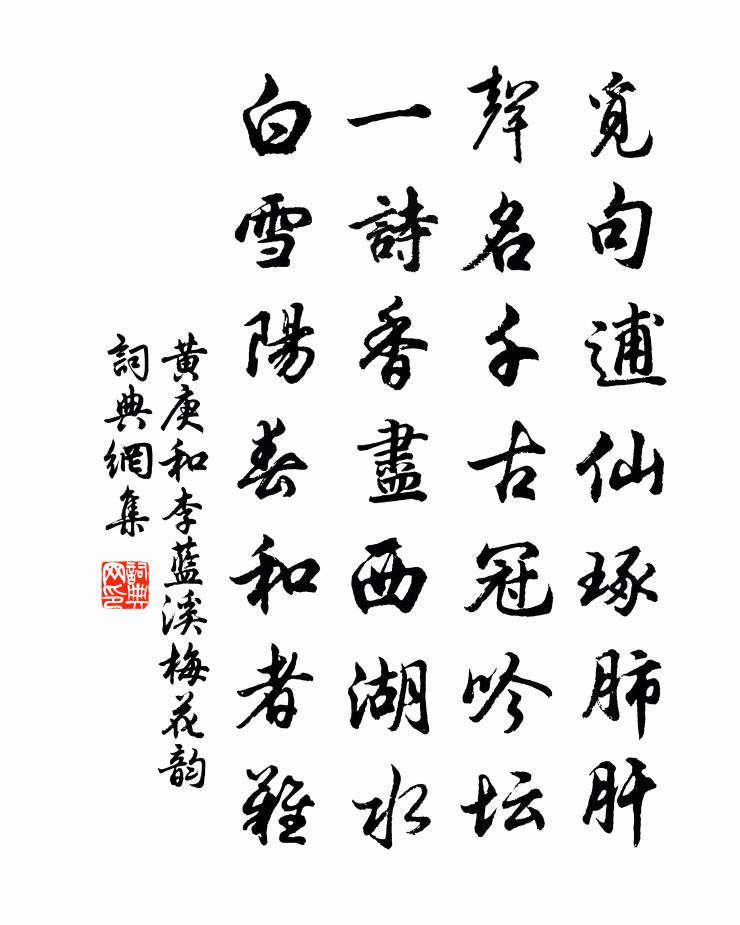 覓句逋仙琢肺肝
聲名千古冠吟坛
一詩香盡西湖水
白雪陽春和者難
黄庚和李藍溪梅花韵
詞典網集
詞典网印